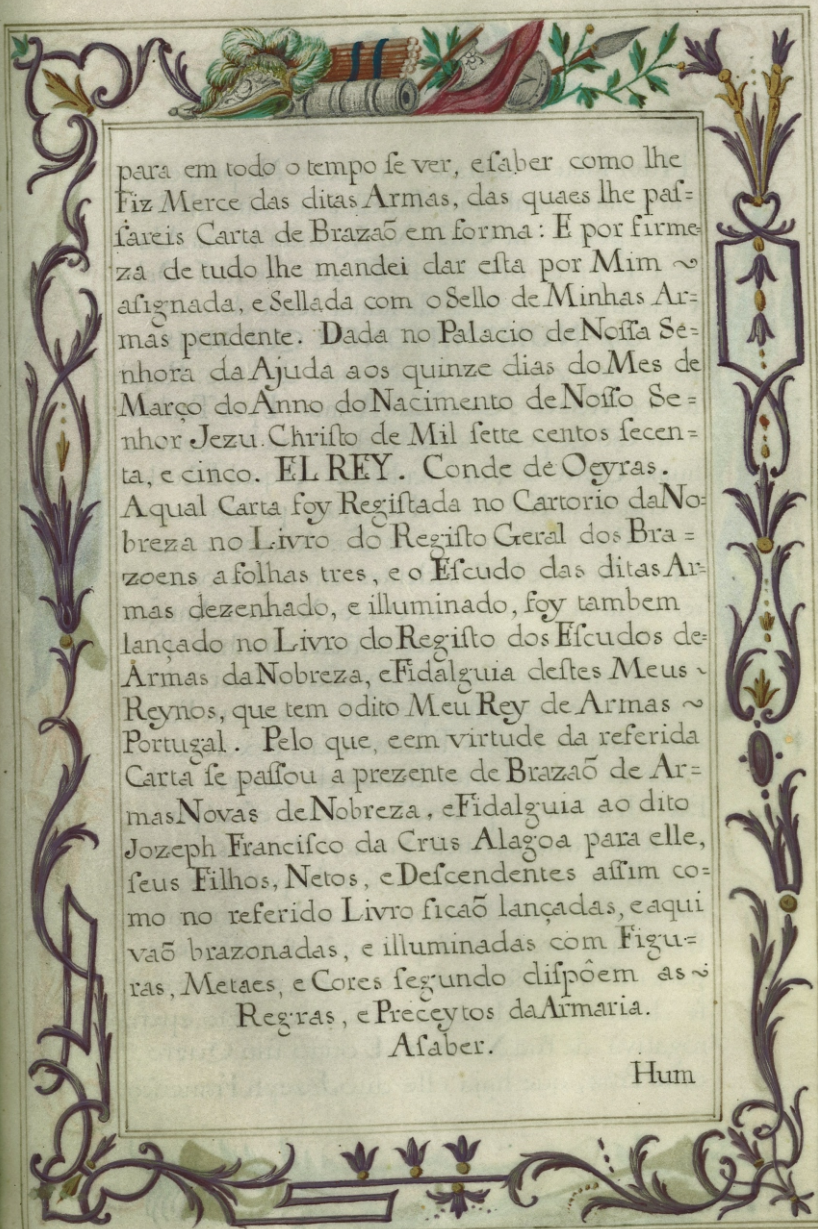 para em todo o tempo ſe ver, eſaber como lhe
Fiz Merce das ditas Armas, das quaes lhe paſ=
ſareis Carta de Brazaõ em forma: E por firme=
za de tudo lhe mandei dar eſta por Mim ~
aſignada, e Sellada com o Sello de Minhas Ar=
mas pendente. Dada no Palacio de Noſſa Se=
nhora da Ajuda aos quinze dias do Mes de
Março do Anno do Nacimento de Noſſo Se=
nhor Jezu Chriſto de Mil ſette centos ſecen=
ta, e cinco. EL REY. Conde de Oeyras.
Aqual Carta foy Regiſtada no Cartorio da No=
breza no Livro do Regiſto Geral dos Bra=
zoens a folhas tres, e o Eſcudo das ditas Ar=
mas dezenhado, e illuminado, foy tambem
lançado no Livro do Regiſto dos Eſcudos de=
Armas da Nobreza, eFidalguia deſtes Meus ~
Reynos, que tem odito Meu Rey de Armas ~
Portugal. Pelo que, eem virtude da referida
Carta ſe paſſou a prezente de Brazaõ de Ar=
mas Novas de Nobreza, eFidalguia ao dito
Jozeph Franciſco da Crus Alagoa para elle,
ſeus Filhos, Netos, e Deſcendentes aſſim co=
mo no referido Livro ficaõ lançadas, e aqui
vaõ brazonadas, e illuminadas com Figu=
ras, Metaes, e Cores ſegundo diſpôem as ~
Regras, e Preceytos da Armaria.
Aſaber.
Hum